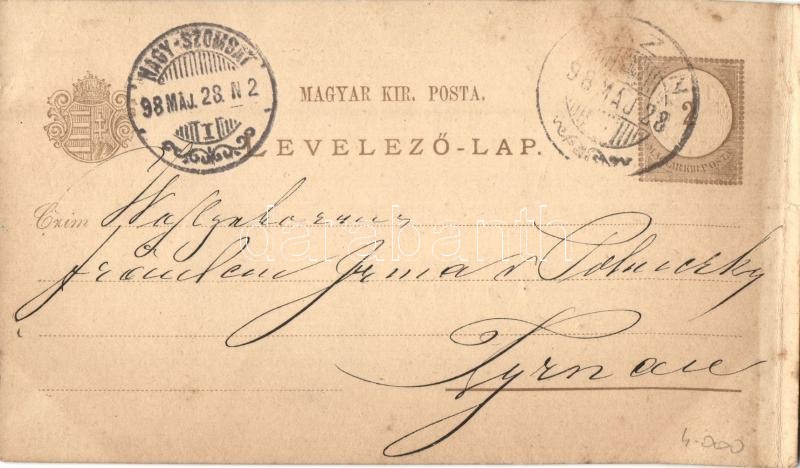 NAGY-SZOMBAT
98 MÁJ. 28. N 2
I
98 MÁJ 28
2
MAGYAR KIR. POSTA
MAGYAR KIR. POSTA.
LEVELEZŐ-LAP.
Czim
Fräulein Irma v
Tyrnau
darabanth
4.000